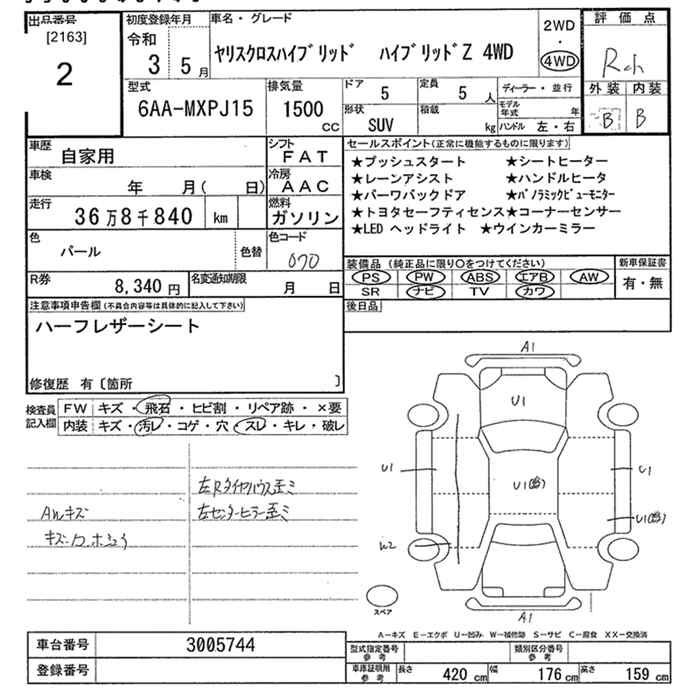 出品番号
[2163]
2
初度登録年月
令和
3 5 月
車名・グレード
ヤリスクロスハイブリッド ハイブリッドZ 4WD
2WD
・
4WD
評価点
外装 内装
B B
型式
6AA-MXPJ15
排気量
1500
cc
ドア
5
定員
5 人
形状
SUV
積載
kg
ディーラー・並行
モデル年式 年
ハンドル 左・右
車歴
自家用
シフト
FAT
車検
年 月( 日)
冷房
AAC
走行
36万8千840 km
燃料
ガソリン
色
パール
色替
色コード
070
R券
8,340 円
名変通知期限
月 日
セールスポイント(正常に機能するものに限ります)
★プッシュスタート ★シートヒーター
★レーンアシスト ★ハンドルヒータ
★パーワバックドア ★パノラミックビューモニター
★トヨタセーフティセンス★コーナーセンサー
★LED ヘッドライト ★ウインカーミラー
装備品(純正品に限り○をつけてください)
PS PW ABS エアB AW
SR ナビ TV カワ
新車保証書
有・無
後日品
注意事項申告欄(不具合内容等は具体的に記入して下さい)
ハーフレザーシート
修復歴 有〔箇所 〕
検査員記入欄
FW キズ・飛石・ヒビ割・リペア跡・×要
内装 キズ・汚レ・コゲ・穴・スレ・キレ・破レ
左Rタイヤハウス歪ミ
AWキズ
左センターピラー歪ミ
A1
U1
U1
U1
U1
U1
W2
A1
スペア
A-キズ E-エクボ U-凹み W-補修跡 S-サビ C-腐食 XX-交換済
車台番号
3005744
登録番号
型式指定番号
参考
類別区分番号
参考
車庫証明用
参考
長さ 420 cm 幅 176 cm 高さ 159 cm